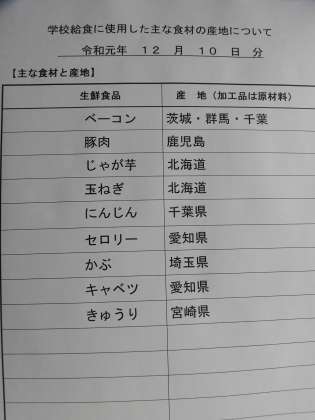 学校給食に使用した主な食材の産地について
令和元年 12 月 10 日 分
【主な食材と産地】
生鮮食品 産 地（加工品は原材料）
ベーコン 茨城・群馬・千葉
豚肉 鹿児島
じゃが芋 北海道
玉ねぎ 北海道
にんじん 千葉県
セロリー 愛知県
かぶ 埼玉県
キャベツ 愛知県
きゅうり 宮崎県